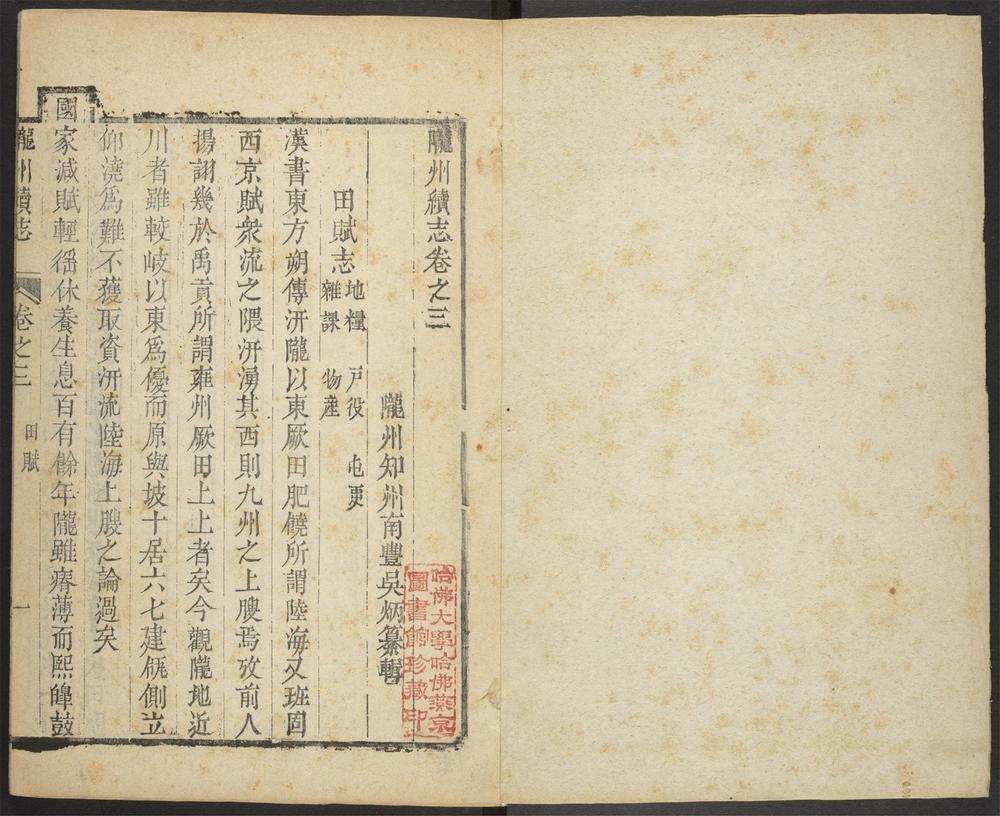 隴州續志卷之三
隴州知州南豐吳炳纂輯
田賦志 地糧 戸役 屯更
雜課 物産
漢書東方朔傳汧隴以東厥田肥饒所謂陸海又班固
西京賦衆流之隈汧湧其西則九州之上腴焉攷前人
揚詡幾於禹貢所謂雍州厥田上上者矣今觀隴地近
川者雖較岐以東爲優而原與坡十居六七建瓴側立
仰澆爲難不獲取資汧流陸海上腴之論過矣
國家減賦輕徭休養生息百有餘年隴雖瘠薄而熙皥鼓
隴州續志 卷之三 田賦 一
哈佛大學哈佛燕京
圖書館珍藏印